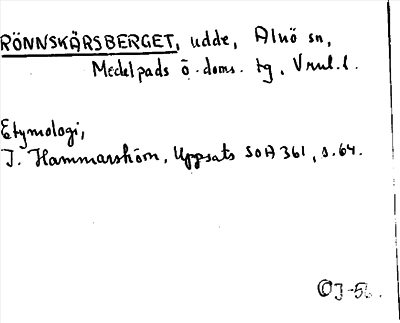 RÖNNSKÄRSBERGET, udde, Alnö sn,
Medelpads ö. doms. tg, Vrnl. l.
Etymologi,
I. Hammarström, Uppsats SOA 361, s. 64.
OJ-56.